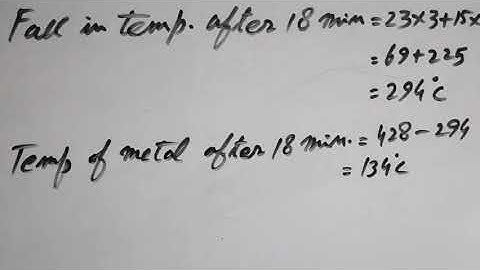 Fall in temp. after 18 min = 23×3+15×
= 69+225
= 294°c
Temp of metal after 18 min. = 428-294
= 134°c